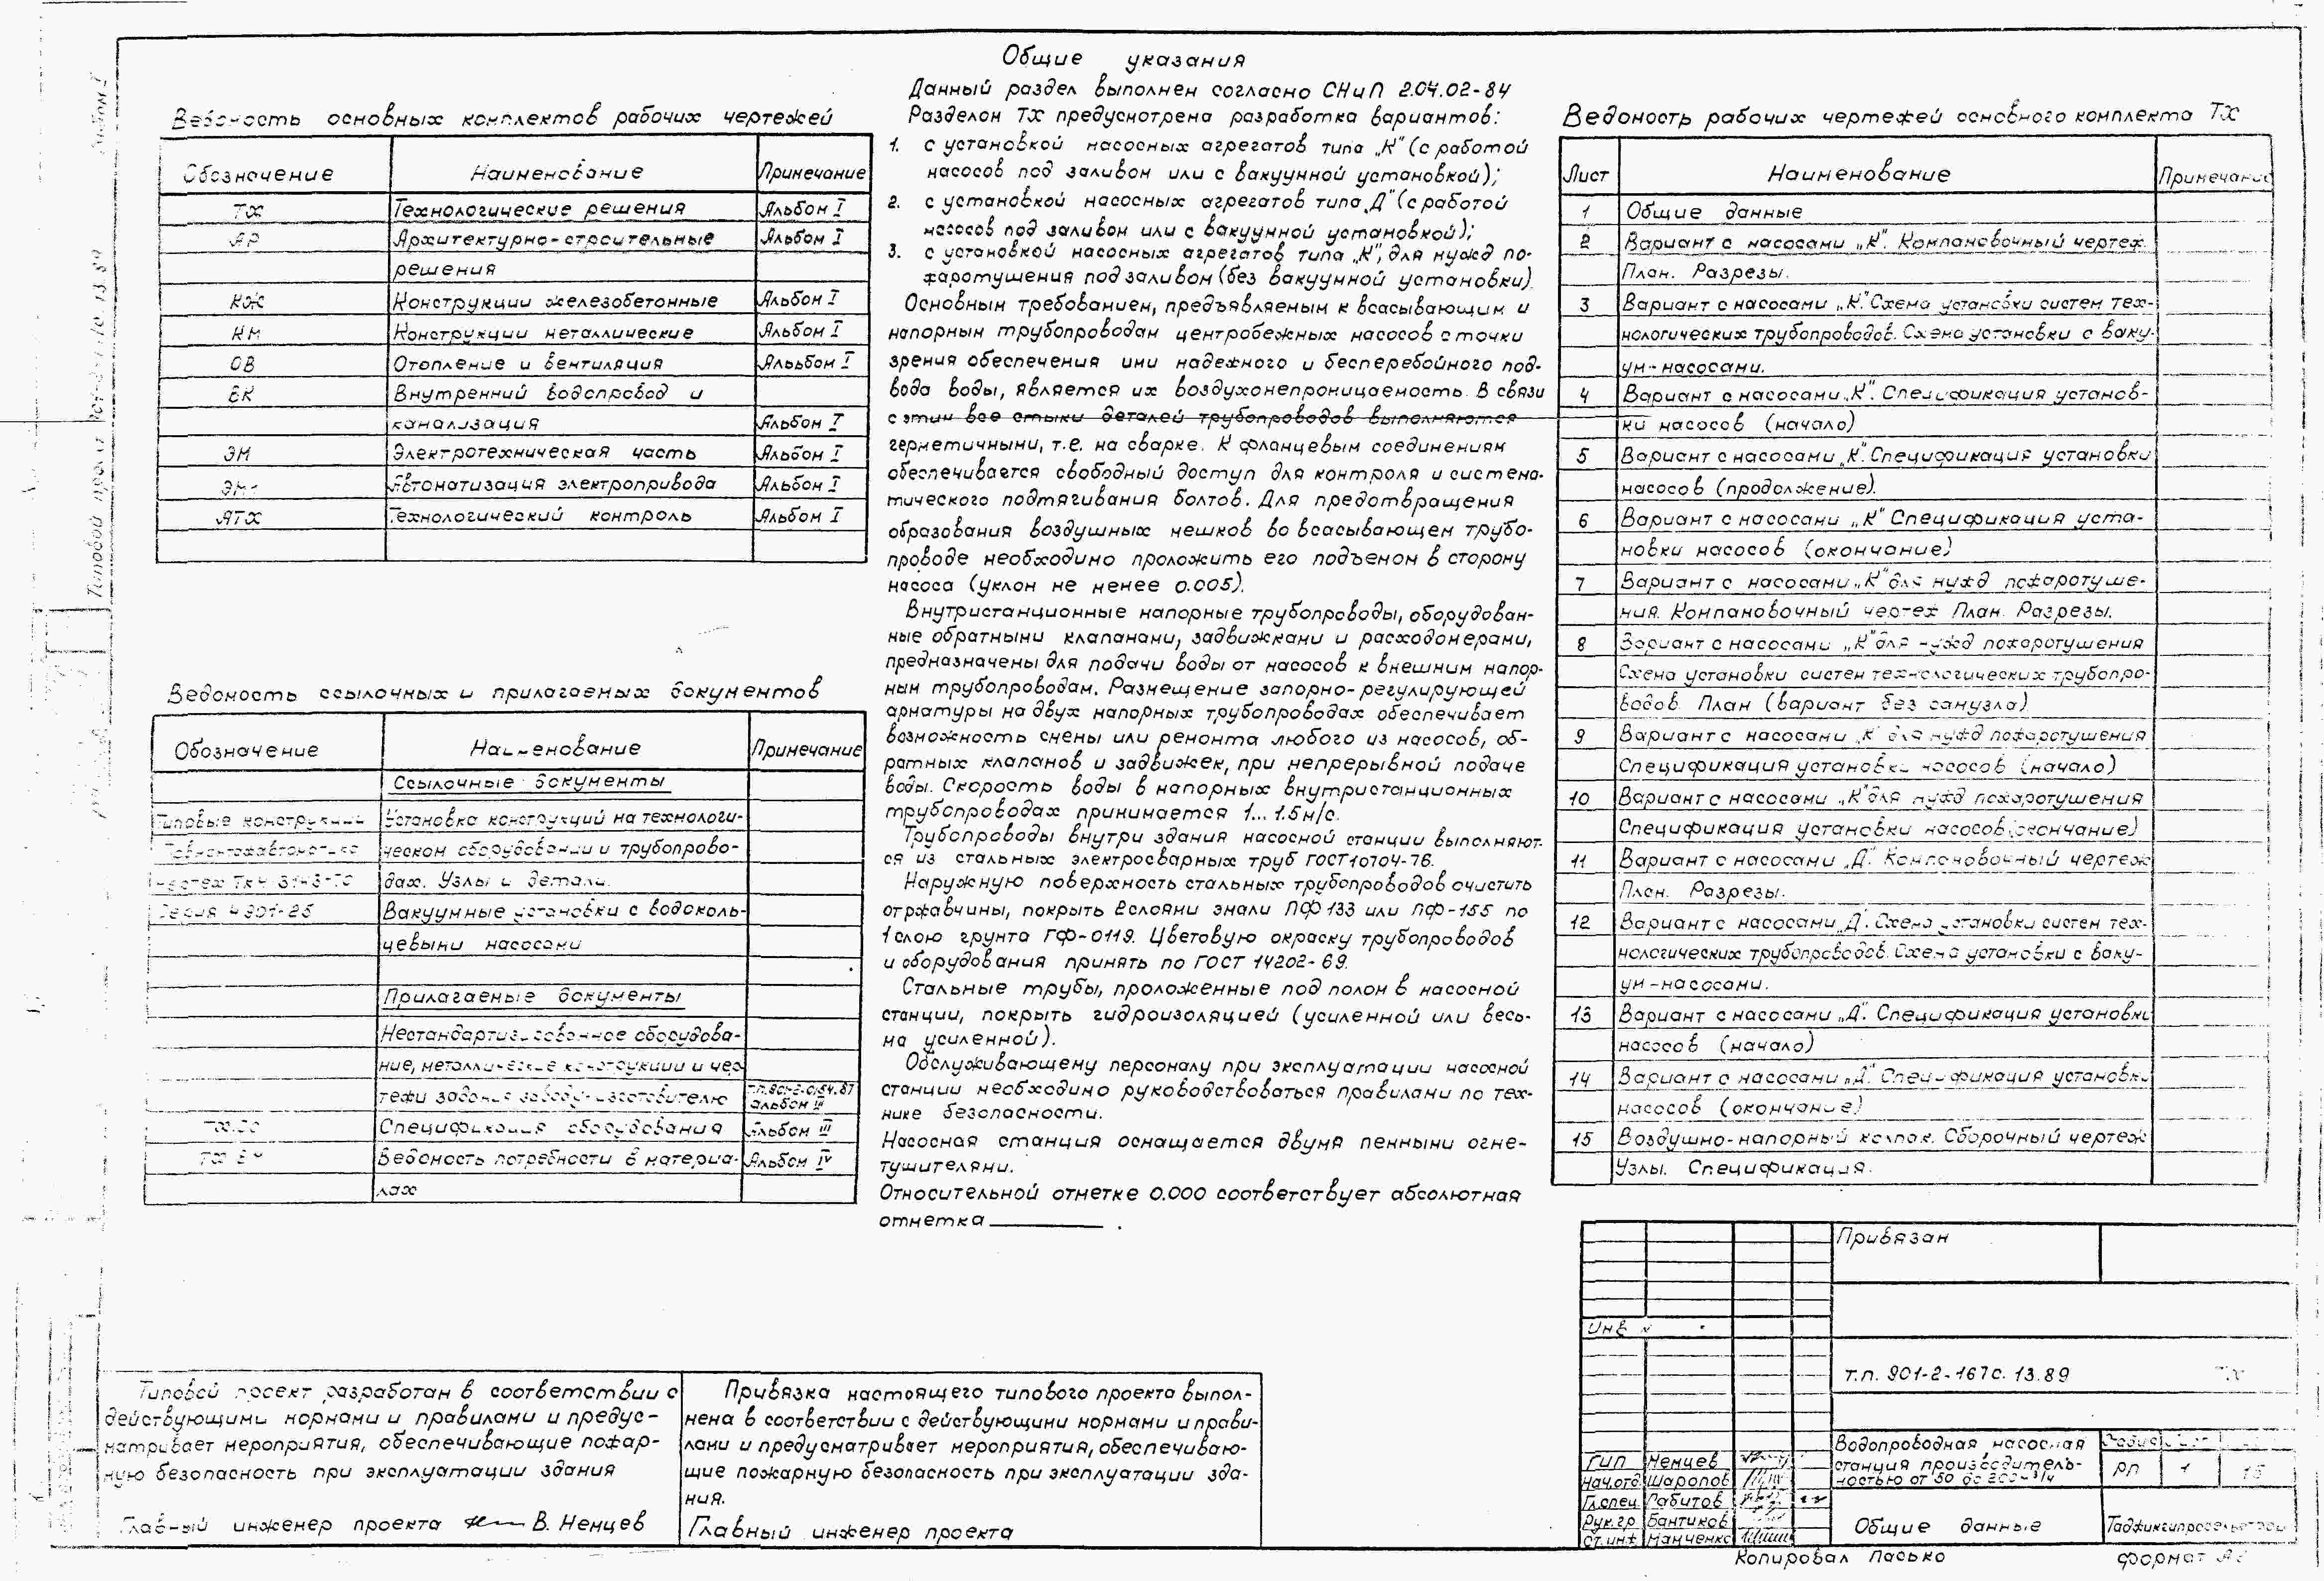 Общие указания
Данный раздел выполнен согласно СНиП 2.04.02-84
Разделом ТХ предусмотрена разработка вариантов:
1. с установкой насосных агрегатов типа „К" (с работой
насосов под заливом или с вакуумной установкой);
2. с установкой насосных агрегатов типа „Д" (с работой
насосов под заливом или с вакуумной установкой);
3. с установкой насосных агрегатов типа „К", для нужд по-
жаротушения под заливом (без вакуумной установки).
Основным требованием, предъявляемым к всасывающим и
напорным трубопроводам центробежных насосов с точки
зрения обеспечения ими надежного и бесперебойного под-
вода воды, является их воздухонепроницаемость. В связи
с этим все стыки деталей трубопроводов выполняются
герметичными, т.е. на сварке. К фланцевым соединениям
обеспечивается свободный доступ для контроля и система-
тического подтягивания болтов. Для предотвращения
образования воздушных мешков во всасывающем трубо-
проводе необходимо проложить его подъемом в сторону
насоса (уклон не менее 0.005).
Внутристанционные напорные трубопроводы, оборудован-
ные обратными клапанами, задвижками и расходомерами,
предназначены для подачи воды от насосов к внешним напор-
ным трубопроводам. Размещение запорно-регулирующей
арматуры на двух напорных трубопроводах обеспечивает
возможность смены или ремонта любого из насосов, об-
ратных клапанов и задвижек, при непрерывной подаче
воды. Скорость воды в напорных внутристанционных
трубопроводах принимается 1... 1.5 м/с.
Трубопроводы внутри здания насосной станции выполняют-
ся из стальных электросварных труб ГОСТ 10704-76.
Наружную поверхность стальных трубопроводов очистить
от ржавчины, покрыть 2 слоями эмали ПФ 133 или ПФ-155 по
1 слою грунта ГФ-0119. Цветовую окраску трубопроводов
и оборудования принять по ГОСТ 14202-69.
Стальные трубы, проложенные под полом в насосной
станции, покрыть гидроизоляцией (усиленной или весь-
ма усиленной).
Обслуживающему персоналу при эксплуатации насосной
станции необходимо руководствоваться правилами по тех-
нике безопасности.
Насосная станция оснащается двумя пенными огне-
тушителями.
Относительной отметке 0.000 соответствует абсолютная
отметка ________ .
Ведомость основных комплектов рабочих чертежей
Обозначение Наименование Примечание
ТХ Технологические решения Альбом I
АР Архитектурно-строительные Альбом I
решения
КЖ Конструкции железобетонные Альбом I
КМ Конструкции металлические Альбом I
ОВ Отопление и вентиляция Альбом I
ВК Внутренний водопровод и
канализация Альбом I
ЭМ Электротехническая часть Альбом I
Автоматизация электропривода Альбом I
АТХ Технологический контроль Альбом I
Ведомость ссылочных и прилагаемых документов
Обозначение Наименование Примечание
Ссылочные документы
Типовые конструкции Установка конструкций на технологи-
ческом оборудовании и трубопрово-
дах. Узлы и детали.
Серия Вакуумные установки с водоколь-
цевыми насосами
Прилагаемые документы
Нестандартизированное оборудова-
ние, металлические конструкции и чер-
тежи задания заводу-изготовителю Альбом III
Спецификация оборудования Альбом III
Ведомость потребности в материа- Альбом IV
лах
Ведомость рабочих чертежей основного комплекта ТХ
Лист Наименование Примечание
1 Общие данные
2 Вариант с насосами „К". Компановочный чертеж.
План. Разрезы.
3 Вариант с насосами „К" Схема установки систем тех-
нологических трубопроводов. Схема установки с ваку-
ум-насосами.
4 Вариант с насосами „К". Спецификация установ-
ки насосов (начало)
5 Вариант с насосами „К". Спецификация установки
насосов (продолжение).
6 Вариант с насосами „К" Спецификация уста-
новки насосов (окончание)
7 Вариант с насосами „К" для нужд пожаротуше-
ния. Компановочный чертеж План. Разрезы.
8 Вариант с насосами „К" для нужд пожаротушения
Схема установки систем технологических трубопро-
водов. План (вариант без санузла)
9 Вариант с насосами „К" для нужд пожаротушения
Спецификация установки насосов (начало)
10 Вариант с насосами „К" для нужд пожаротушения
Спецификация установки насосов (окончание)
11 Вариант с насосами „Д". Компановочный чертеж
План. Разрезы.
12 Вариант с насосами „Д". Схема установки систем тех-
нологических трубопроводов. Схема установки с ваку-
ум-насосами.
13 Вариант с насосами „Д". Спецификация установки
насосов (начало)
14 Вариант с насосами „Д". Спецификация установки
насосов (окончание)
15 Воздушно-напорный колпак. Сборочный чертеж
Узлы. Спецификация.
Типовой проект разработан в соответствии с
действующими нормами и правилами и предус-
матривает мероприятия, обеспечивающие пожар-
ную безопасность при эксплуатации здания
Главный инженер проекта В. Немцев
Привязка настоящего типового проекта выпол-
нена в соответствии с действующими нормами и прави-
лами и предусматривает мероприятия, обеспечиваю-
щие пожарную безопасность при эксплуатации зда-
ния.
Главный инженер проекта
Привязан
Инв №
т.п. 901-2-167с. 13.89 ТХ
Водопроводная насосная
станция производитель-
ностью от 50 до
РП 1 15
ГИП Немцев
Нач.отд Шарапов
Гл.спец. Рабитов
Рук.гр Бантиков
Ст.инж Манченко
Общие данные
Копировал Пасько формат